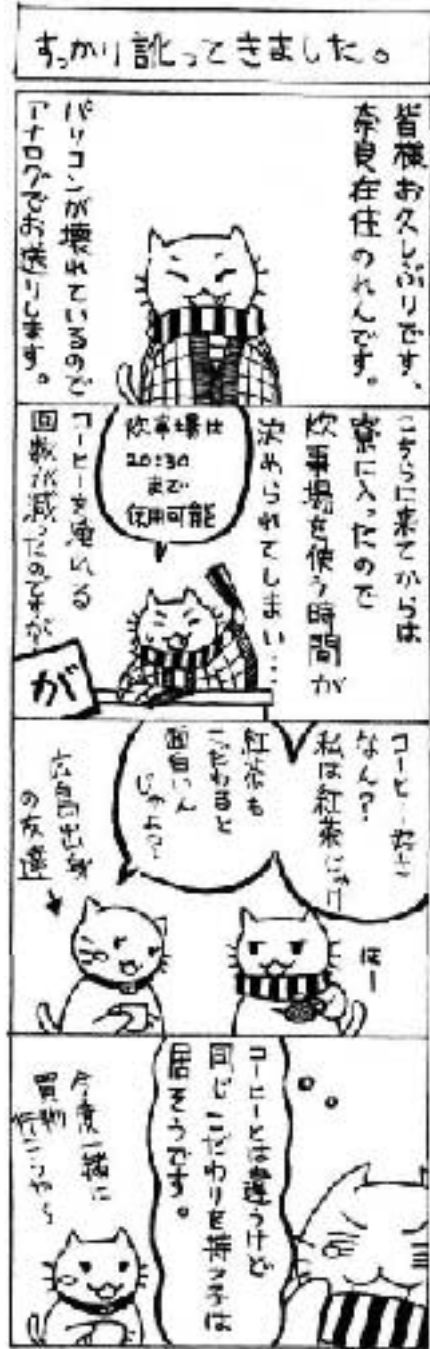 すっかり訛ってきました。
皆様お久しぶりです、
奈良在住のれんです。
パソコンが壊れているので
アナログでお送りします。
こちらに来てからは
寮に入ったので
炊事場を使う時間が
決められてしまい…
炊事場は
20:30
まで
使用可能
コーヒーを淹れる
回数が減ったのですが
が
コーヒー好き
なん?
私は紅茶じゃけ
紅茶も
こだわると
面白いん
じゃよ?
ほー
の友達
コーヒーとは違うけど
同じこだわりを持つ子は
居そうです。
今度一緒に
買物